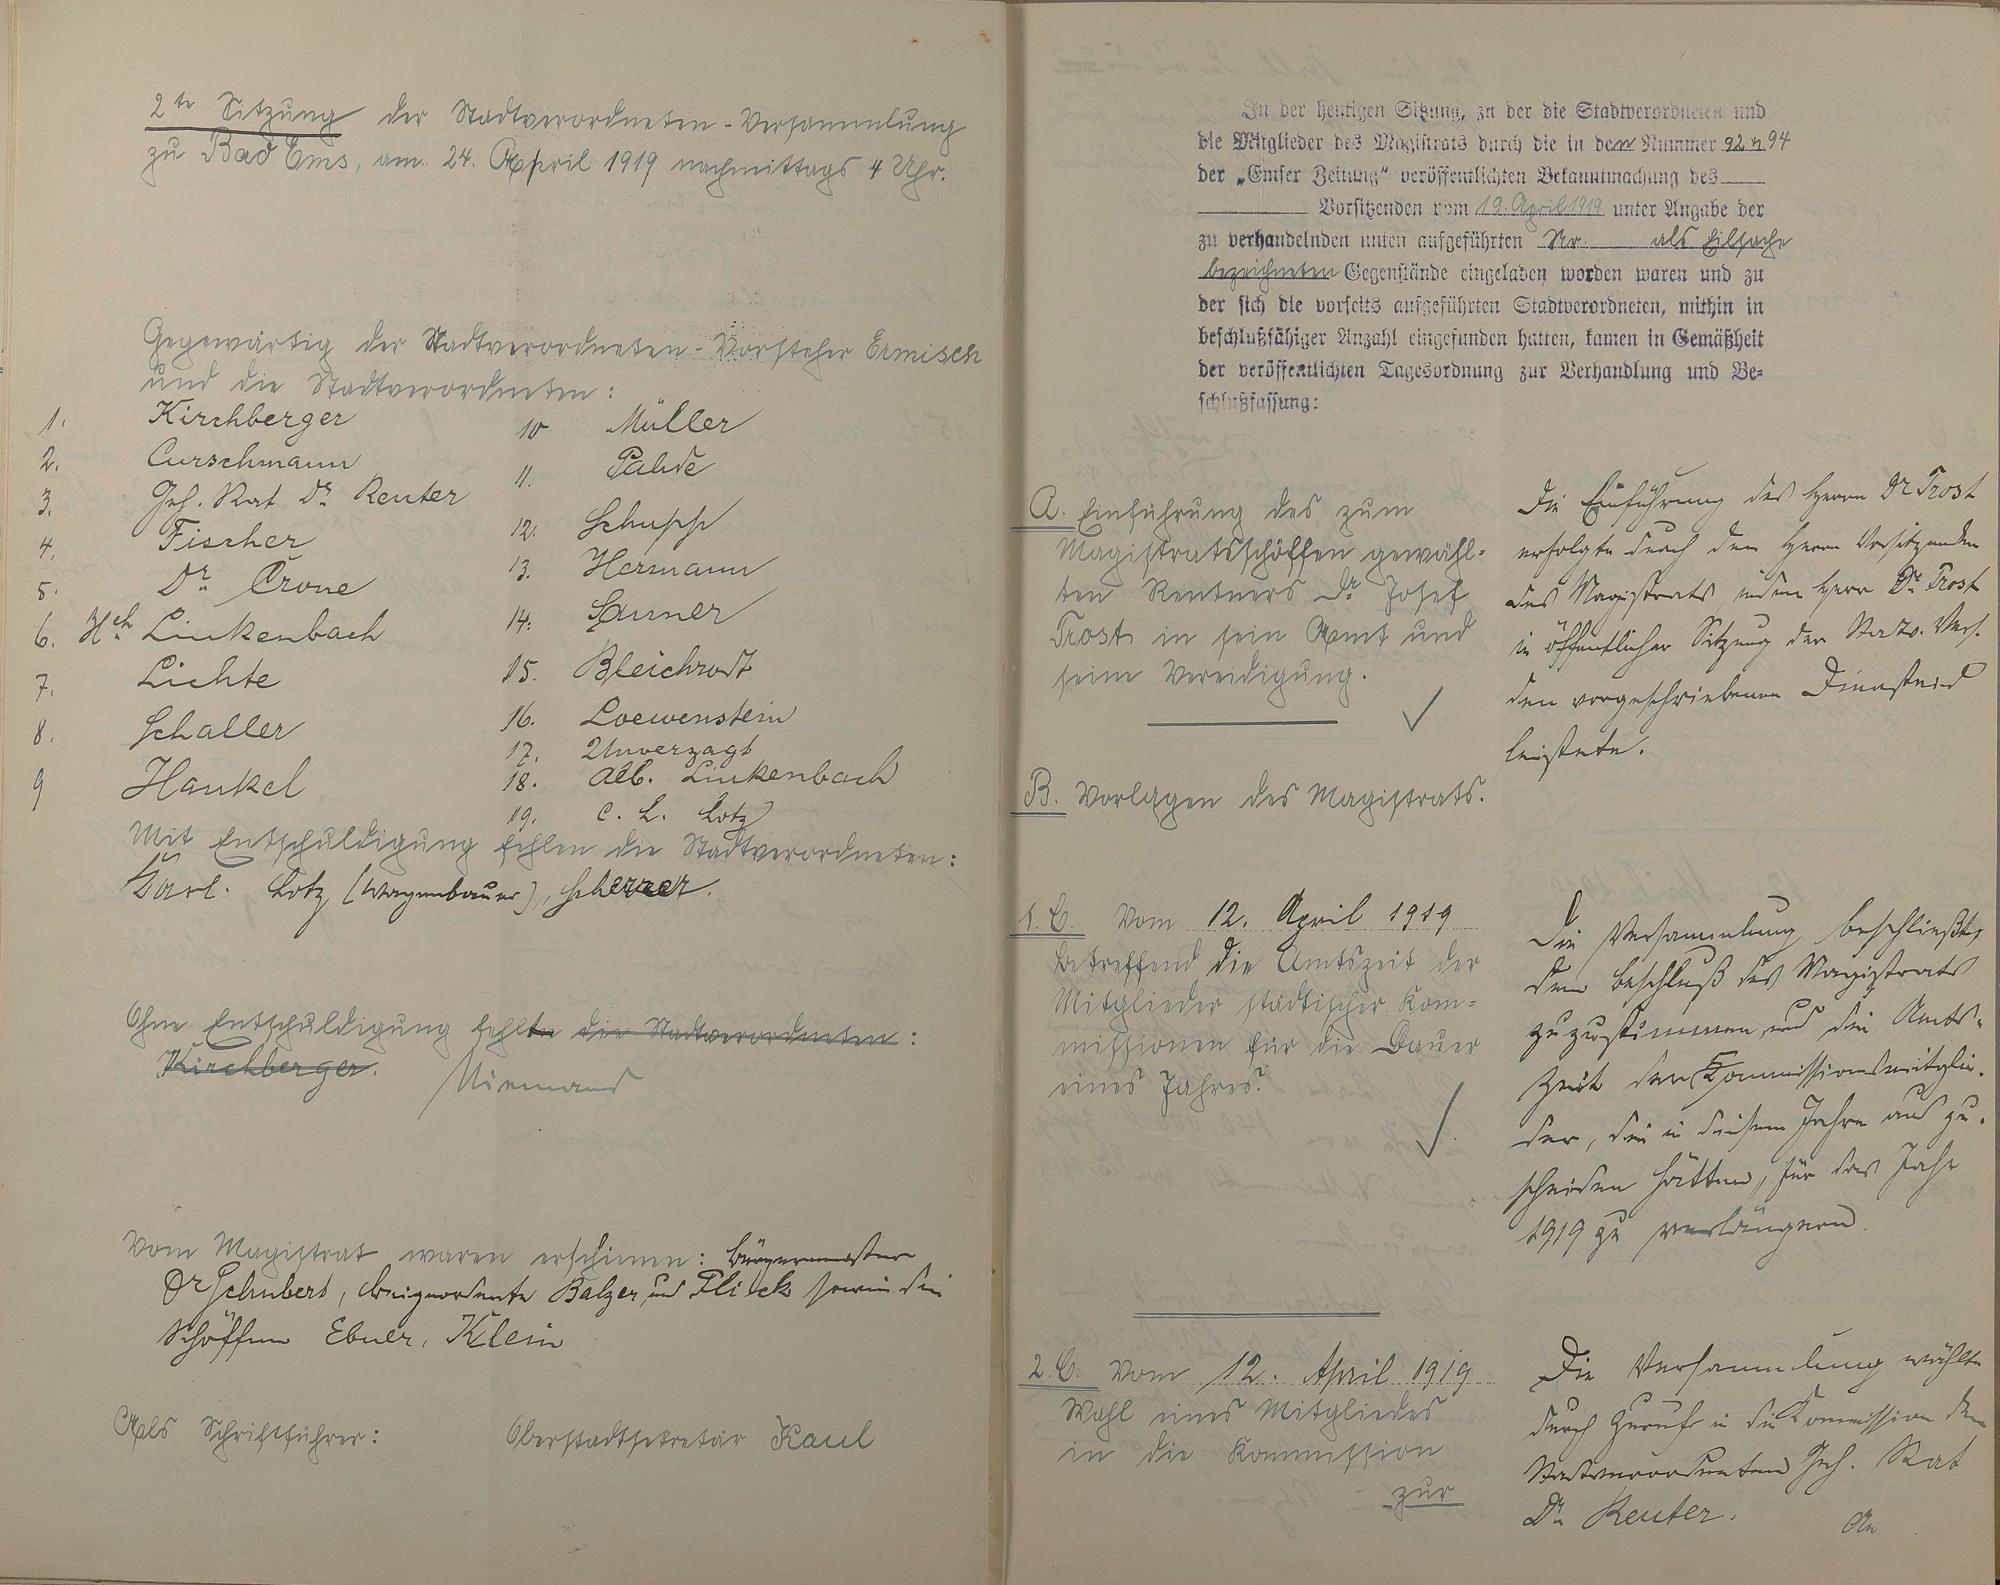 2te Sitzung der Stadtverordneten-Versammlung
zu Bad Ems, am 24. April 1919 nachmittags 4 Uhr.
Gegenwärtig der Stadtverordneten-Vorsteher Ermisch
und die Stadtverordneten:
1. Kirchberger
2. Curschmann
3. Geh. Rat Dr Reuter
4. Fischer
5. Dr Crone
6. Hch Linkenbach
7. Lichte
8. Schaller
9 Hankel
10 Müller
11. Pahde
12. Schupp
13. Hermann
14.
15. Bleichrodt
16. Loewenstein
17. Unverzagt
18. Alb. Linkenbach
19. C. L. Lotz
Mit Entschuldigung fehlen die Stadtverordneten:
Karl Lotz (Wagenbauer), Scherrer.
Ohne Entschuldigung fehlten die Stadtverordneten:
Kirchberger. Niemand
Vom Magistrat waren erschienen: Bürgermeister
Dr Schubert, Beigeordnete Balzer und Flöck sowie die
Schöffen Ebner, Klein
Als Schriftführer: Oberstadtsekretär Kaul
In der heutigen Sitzung, zu der die Stadtverordneten und
die Mitglieder des Magistrats durch die in den Nummer 92 u 94
der „Emser Zeitung“ veröffentlichten Bekanntmachung des
Vorsitzenden vom 19. April 1919 unter Angabe der
zu verhandelnden unten aufgeführten Nr. als Eilsache
bezeichneten Gegenstände eingeladen worden waren und zu
der sich die vorseits aufgeführten Stadtverordneten, mithin in
beschlußfähiger Anzahl eingefunden hatten, kamen in Gemäßheit
der veröffentlichten Tagesordnung zur Verhandlung und Be-
schlußfassung:
A. Einführung des zum
Magistratsschöffen gewähl-
ten Rentners Dr Josef
Trost in sein Amt und
seine Vereidigung.
Die Einführung des Herrn Dr Trost
erfolgte durch den Herrn Vorsitzenden
des Magistrats, indem Herr Dr Trost
in öffentlicher Sitzung der Stadtv. Vers.
den vorgeschriebenen Diensteid
leistete.
B. Vorlagen des Magistrats.
1. C. Vom 12. April 1919
betreffend die Amtszeit der
Mitglieder städtischer Kom-
missionen für die Dauer
eines Jahres.
Die Versammlung beschließt,
dem Beschluß des Magistrats
zuzustimmen und die Amts-
zeit der Kommissionsmitglie-
der, die in diesem Jahre auszu-
scheiden hätten, für das Jahr
1919 zu verlängern.
2. C. Vom 12. April 1919
Wahl eines Mitgliedes
in die Kommission
zur
Die Versammlung wählte
durch Zuruf in die Kommission den
Stadtverordneten Geh. Rat
Dr Reuter.
An